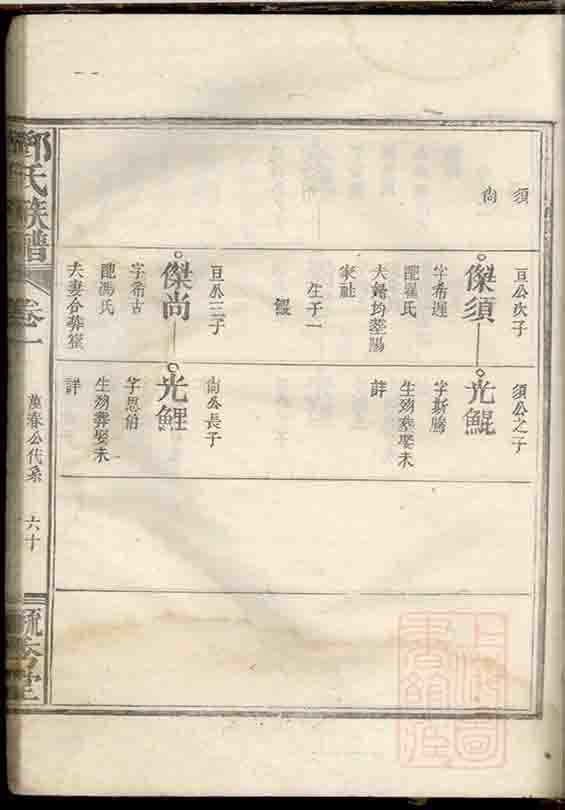 須
尚
亘公次子
傑須
字希遲
配翟氏
夫婦均塟陽
家祉
生子一
鯤
亘公三子
傑尚
字希古
配馮氏
夫妻合葬
須公之子
光鯤
字斯騰
生殁葬娶未
詳
尚公長子
光鯉
字思伯
生殁葬娶未
詳
氏族譜
卷一
萬春公代系
六十
上海圖
書館藏